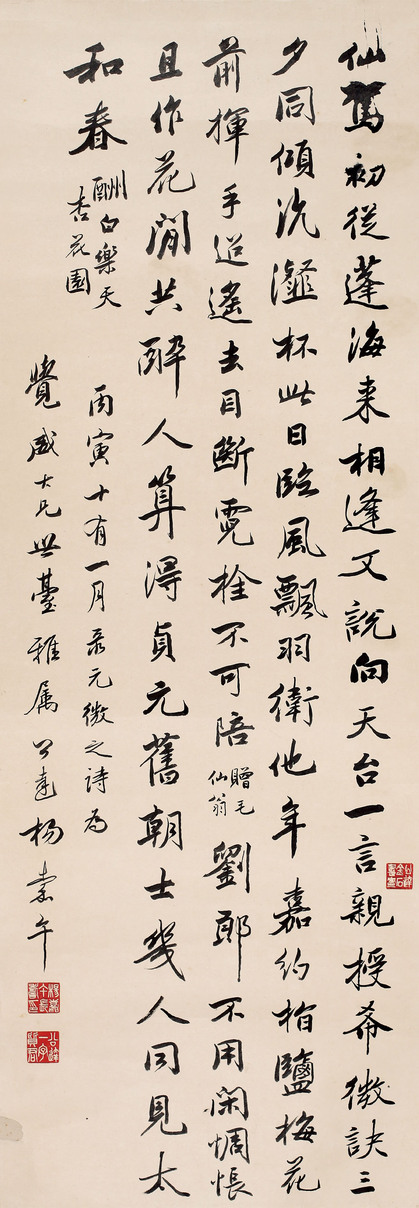 仙駕初從蓬海來相逢又說向天台一言親授希微訣三
夕同傾沆瀣杯此日臨風飄羽衛他年嘉約指鹽梅花
前揮手迢遙去目斷霓旌不可陪
贈毛
仙翁
劉郎不用閑惆悵
且作花間共醉人算得貞元舊朝士幾人同見太
和春
酬白樂天
杏花園
丙寅十有一月录元微之詩為
覺盛大兄世臺雅属公達楊午